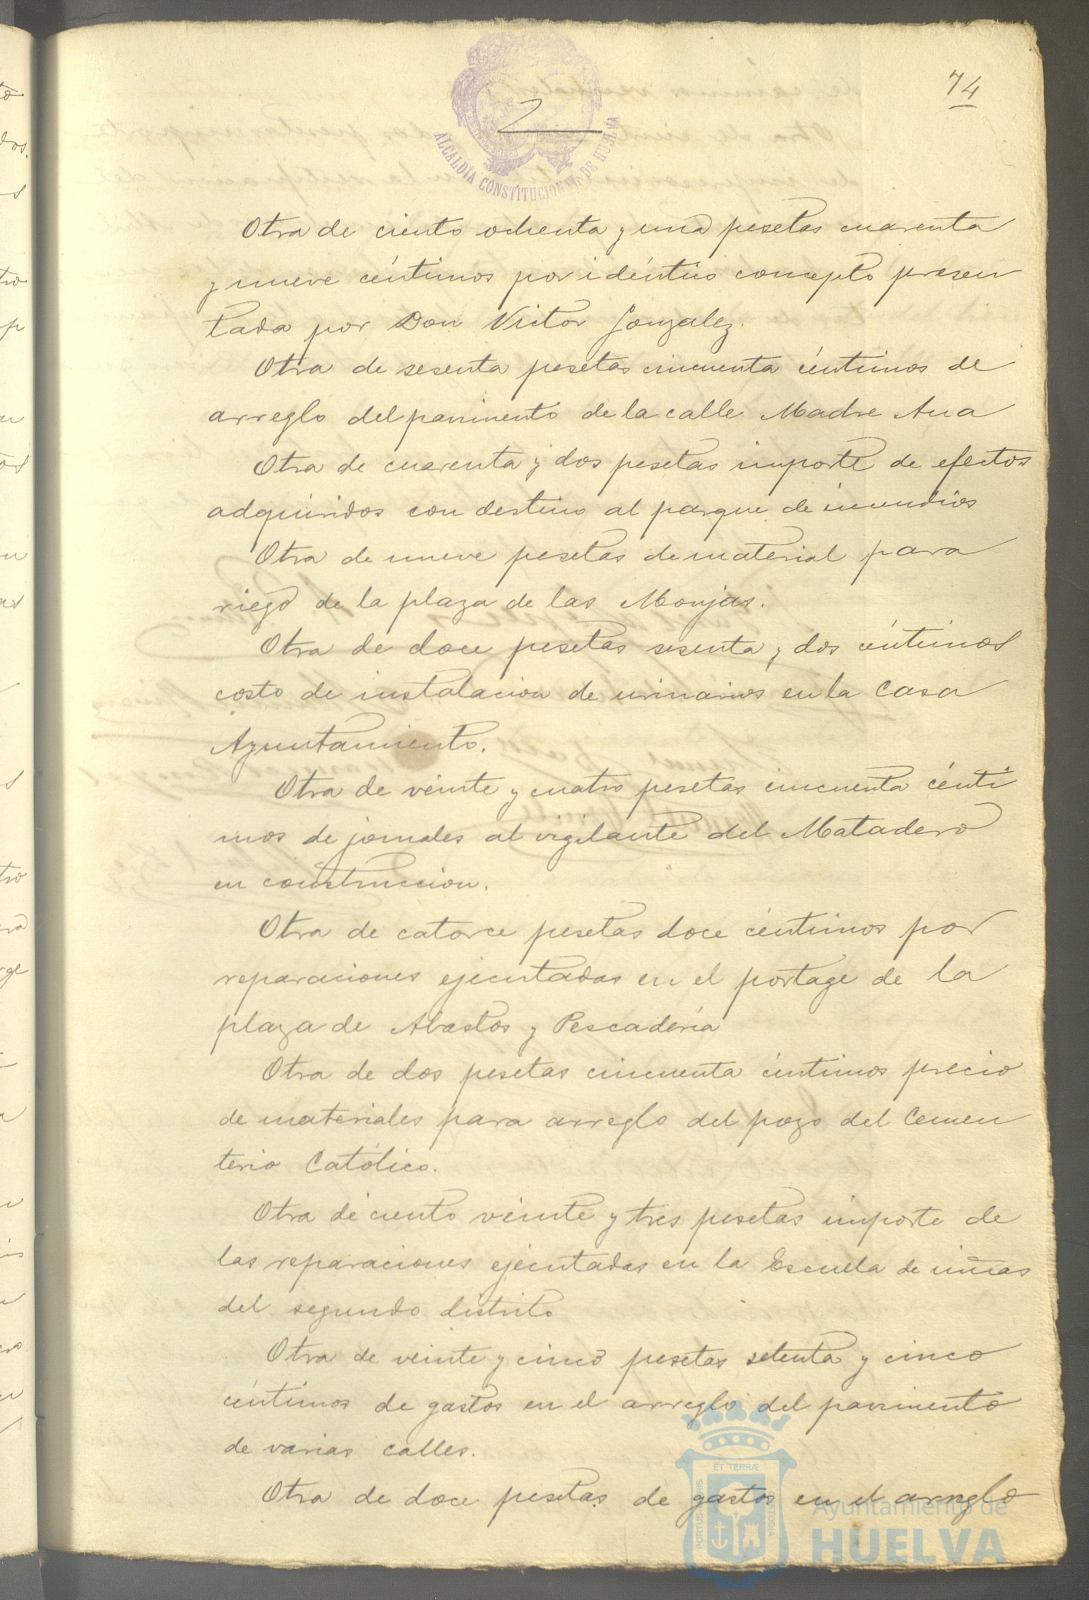 74
2
ALCALDÍA CONSTITUCIONAL DE HUELVA
Otra de ciento ochenta y una pesetas cuarenta
y nueve céntimos por idéntico concepto presen
tada por Don Victor Gonzalez.
Otra de sesenta pesetas cincuenta céntimos de
arreglo del pavimento de la calle Madre Ana
Otra de cuarenta y dos pesetas importe de efectos
adquiridos con destino al parque de incendios
Otra de nueve pesetas de material para
riego de la plaza de las Monjas.
Otra de doce pesetas sesenta y dos céntimos
costo de instalacion de urinarios en la Casa
Ayuntamiento.
Otra de veinte y cuatro pesetas cincuenta cénti
mos de jornales al vigilante del Matadero
en construccion.
Otra de catorce pesetas doce céntimos por
reparaciones ejecutadas en el portage de la
plaza de Abastos y Pescadería
Otra de dos pesetas cincuenta céntimos precio
de materiales para arreglo del pozo del Cemen
terio Católico.
Otra de ciento veinte y tres pesetas importe de
las reparaciones ejecutadas en la Escuela de niñas
del segundo distrito
Otra de veinte y cinco pesetas setenta y cinco
céntimos de gastos en el arreglo del pavimento
de varias calles.
Otra de doce pesetas de gastos en el arreglo
Ayuntamiento de
HUELVA